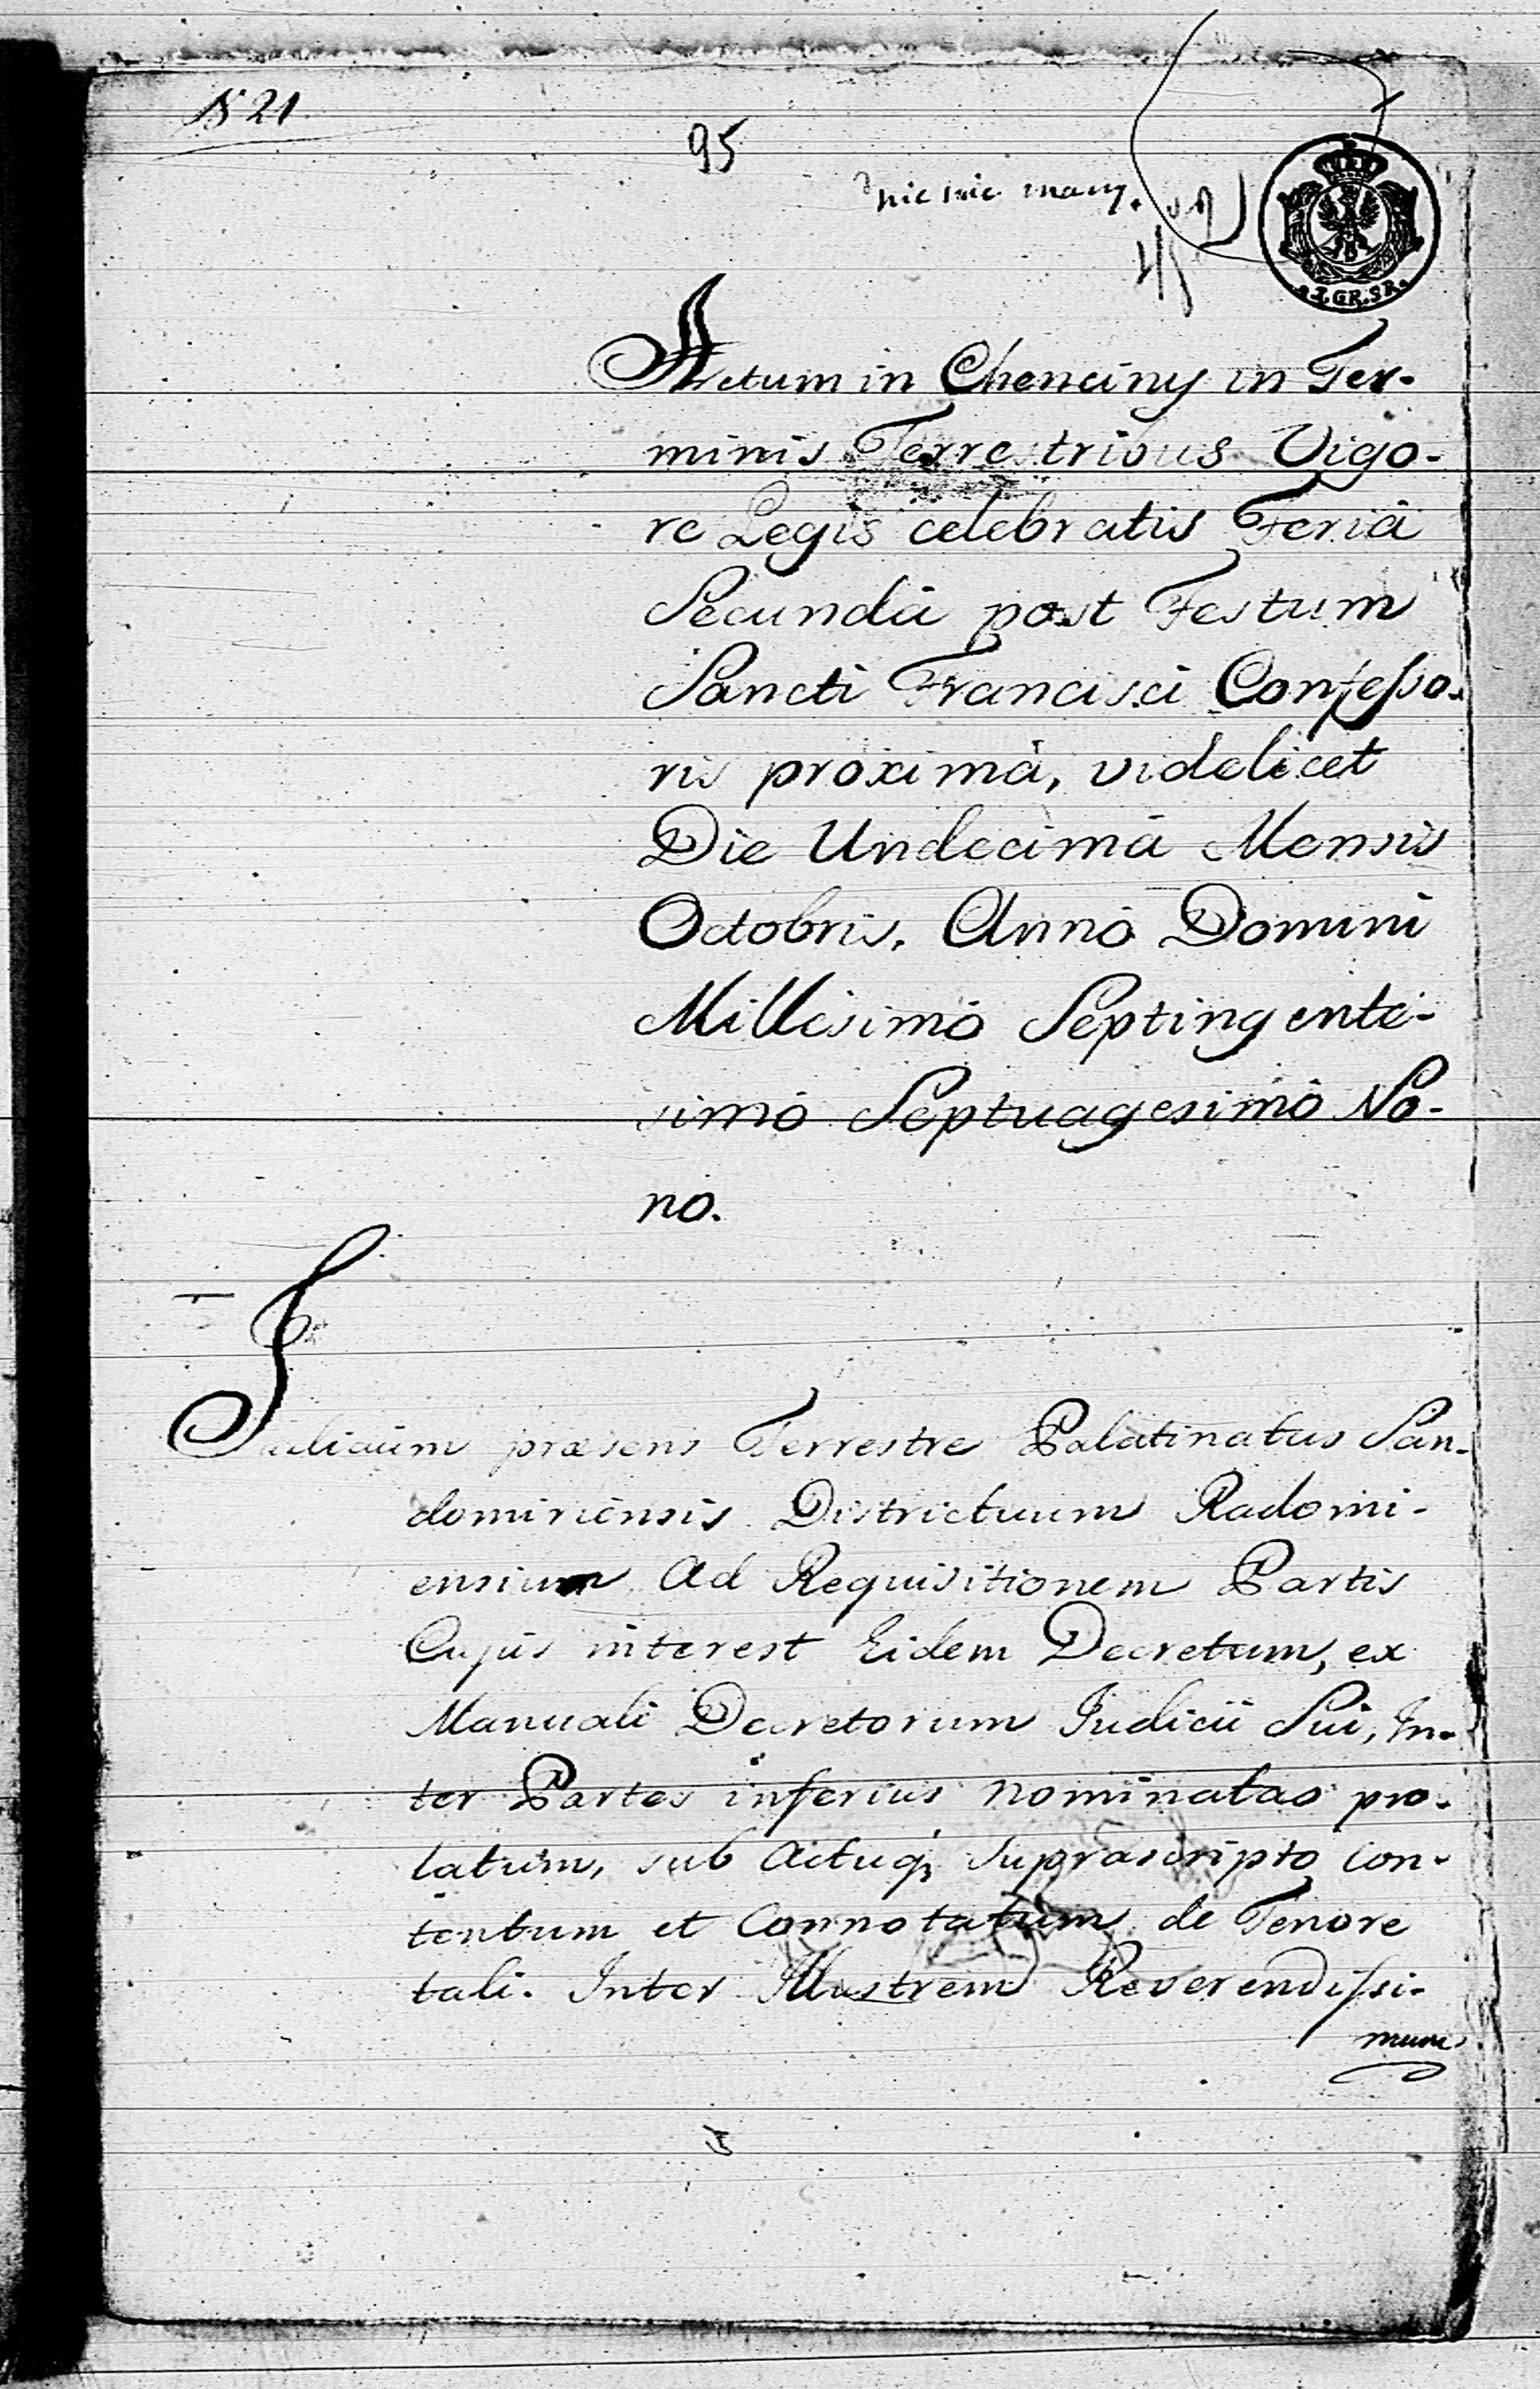 N 21
95
nic nie mamy.
I. GR. SR.
Actum in Chenciny in Ter-
minis Terrestribus Vigo-
re Legis celebratis Feriâ
Secundâ post Festum
Sancti Francisci Confesso-
ris proximâ, videlicet
Die Undecimâ Mensis
Octobris, Annô Domini
Millesimô Septingente-
simô Septuagesimô No-
no.
Judicium præsens Terrestre Palatinatus San-
domiriensis Districtuum Radomi-
ensium Ad Requisitionem Partis
Cujus interest Eidem Decretum, ex
Manuali Decretorum Judicii Sui, In-
ter Partes inferius nominatas pro-
latum, sub Actuq; suprascripto con-
tentum et Connotatum de Tenore
tali. Inter Illustrem Reverendissi-
mum